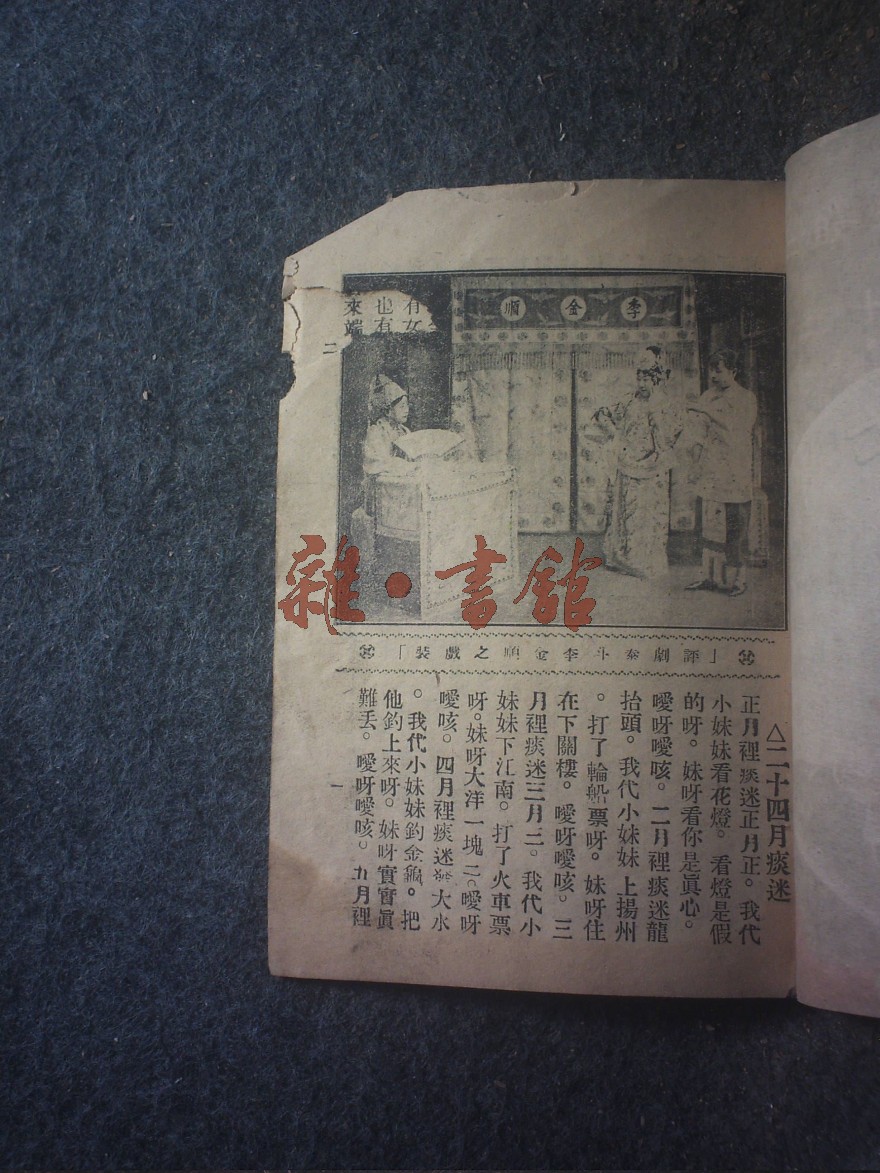 有女
也有
來端
二
李金順
「評劇泰斗李金順之戲裝」
△二十四月痰迷
正月裡痰迷正月正。我代
小妹妹看花燈。看燈是假
的呀。妹呀看你是眞心。
噯呀噯咳。二月裡痰迷龍
抬頭。我代小妹妹上揚州
。打了輪船票呀。妹呀住
在下關樓。噯呀噯咳。三
月裡痰迷三月三。我代小
妹妹下江南。打了火車票
呀。妹呀大洋一塊二。噯呀
噯咳。四月裡痰迷 大水
。我代小妹妹釣金龜。把
他釣上來呀。妹呀實實眞
難丢。噯呀噯咳。五月裡
一
雜·書館